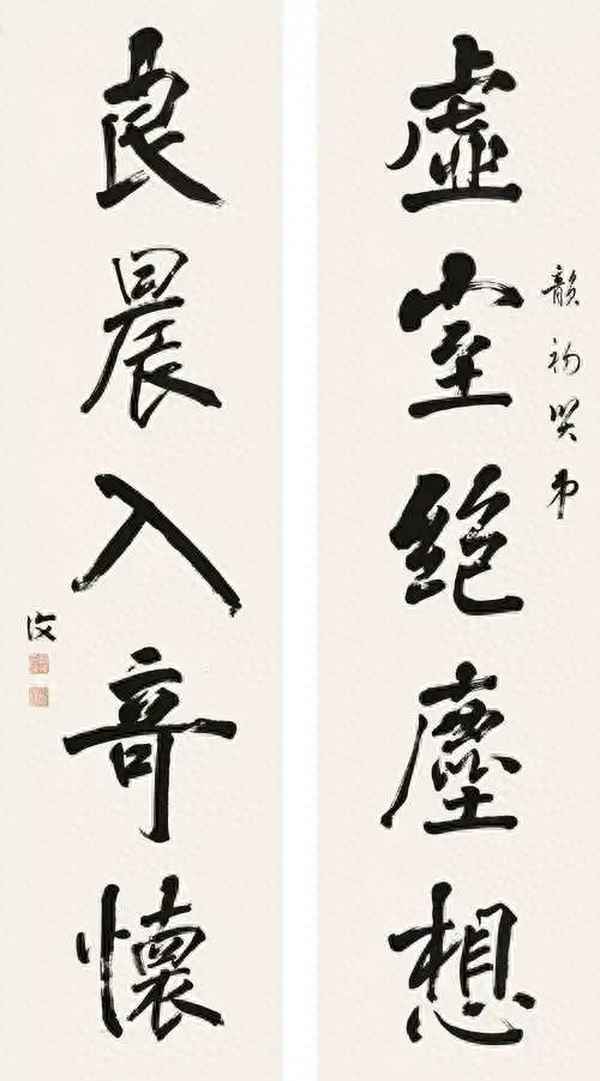 虛室絕塵想
韻初賢弟
良晨入奇懷